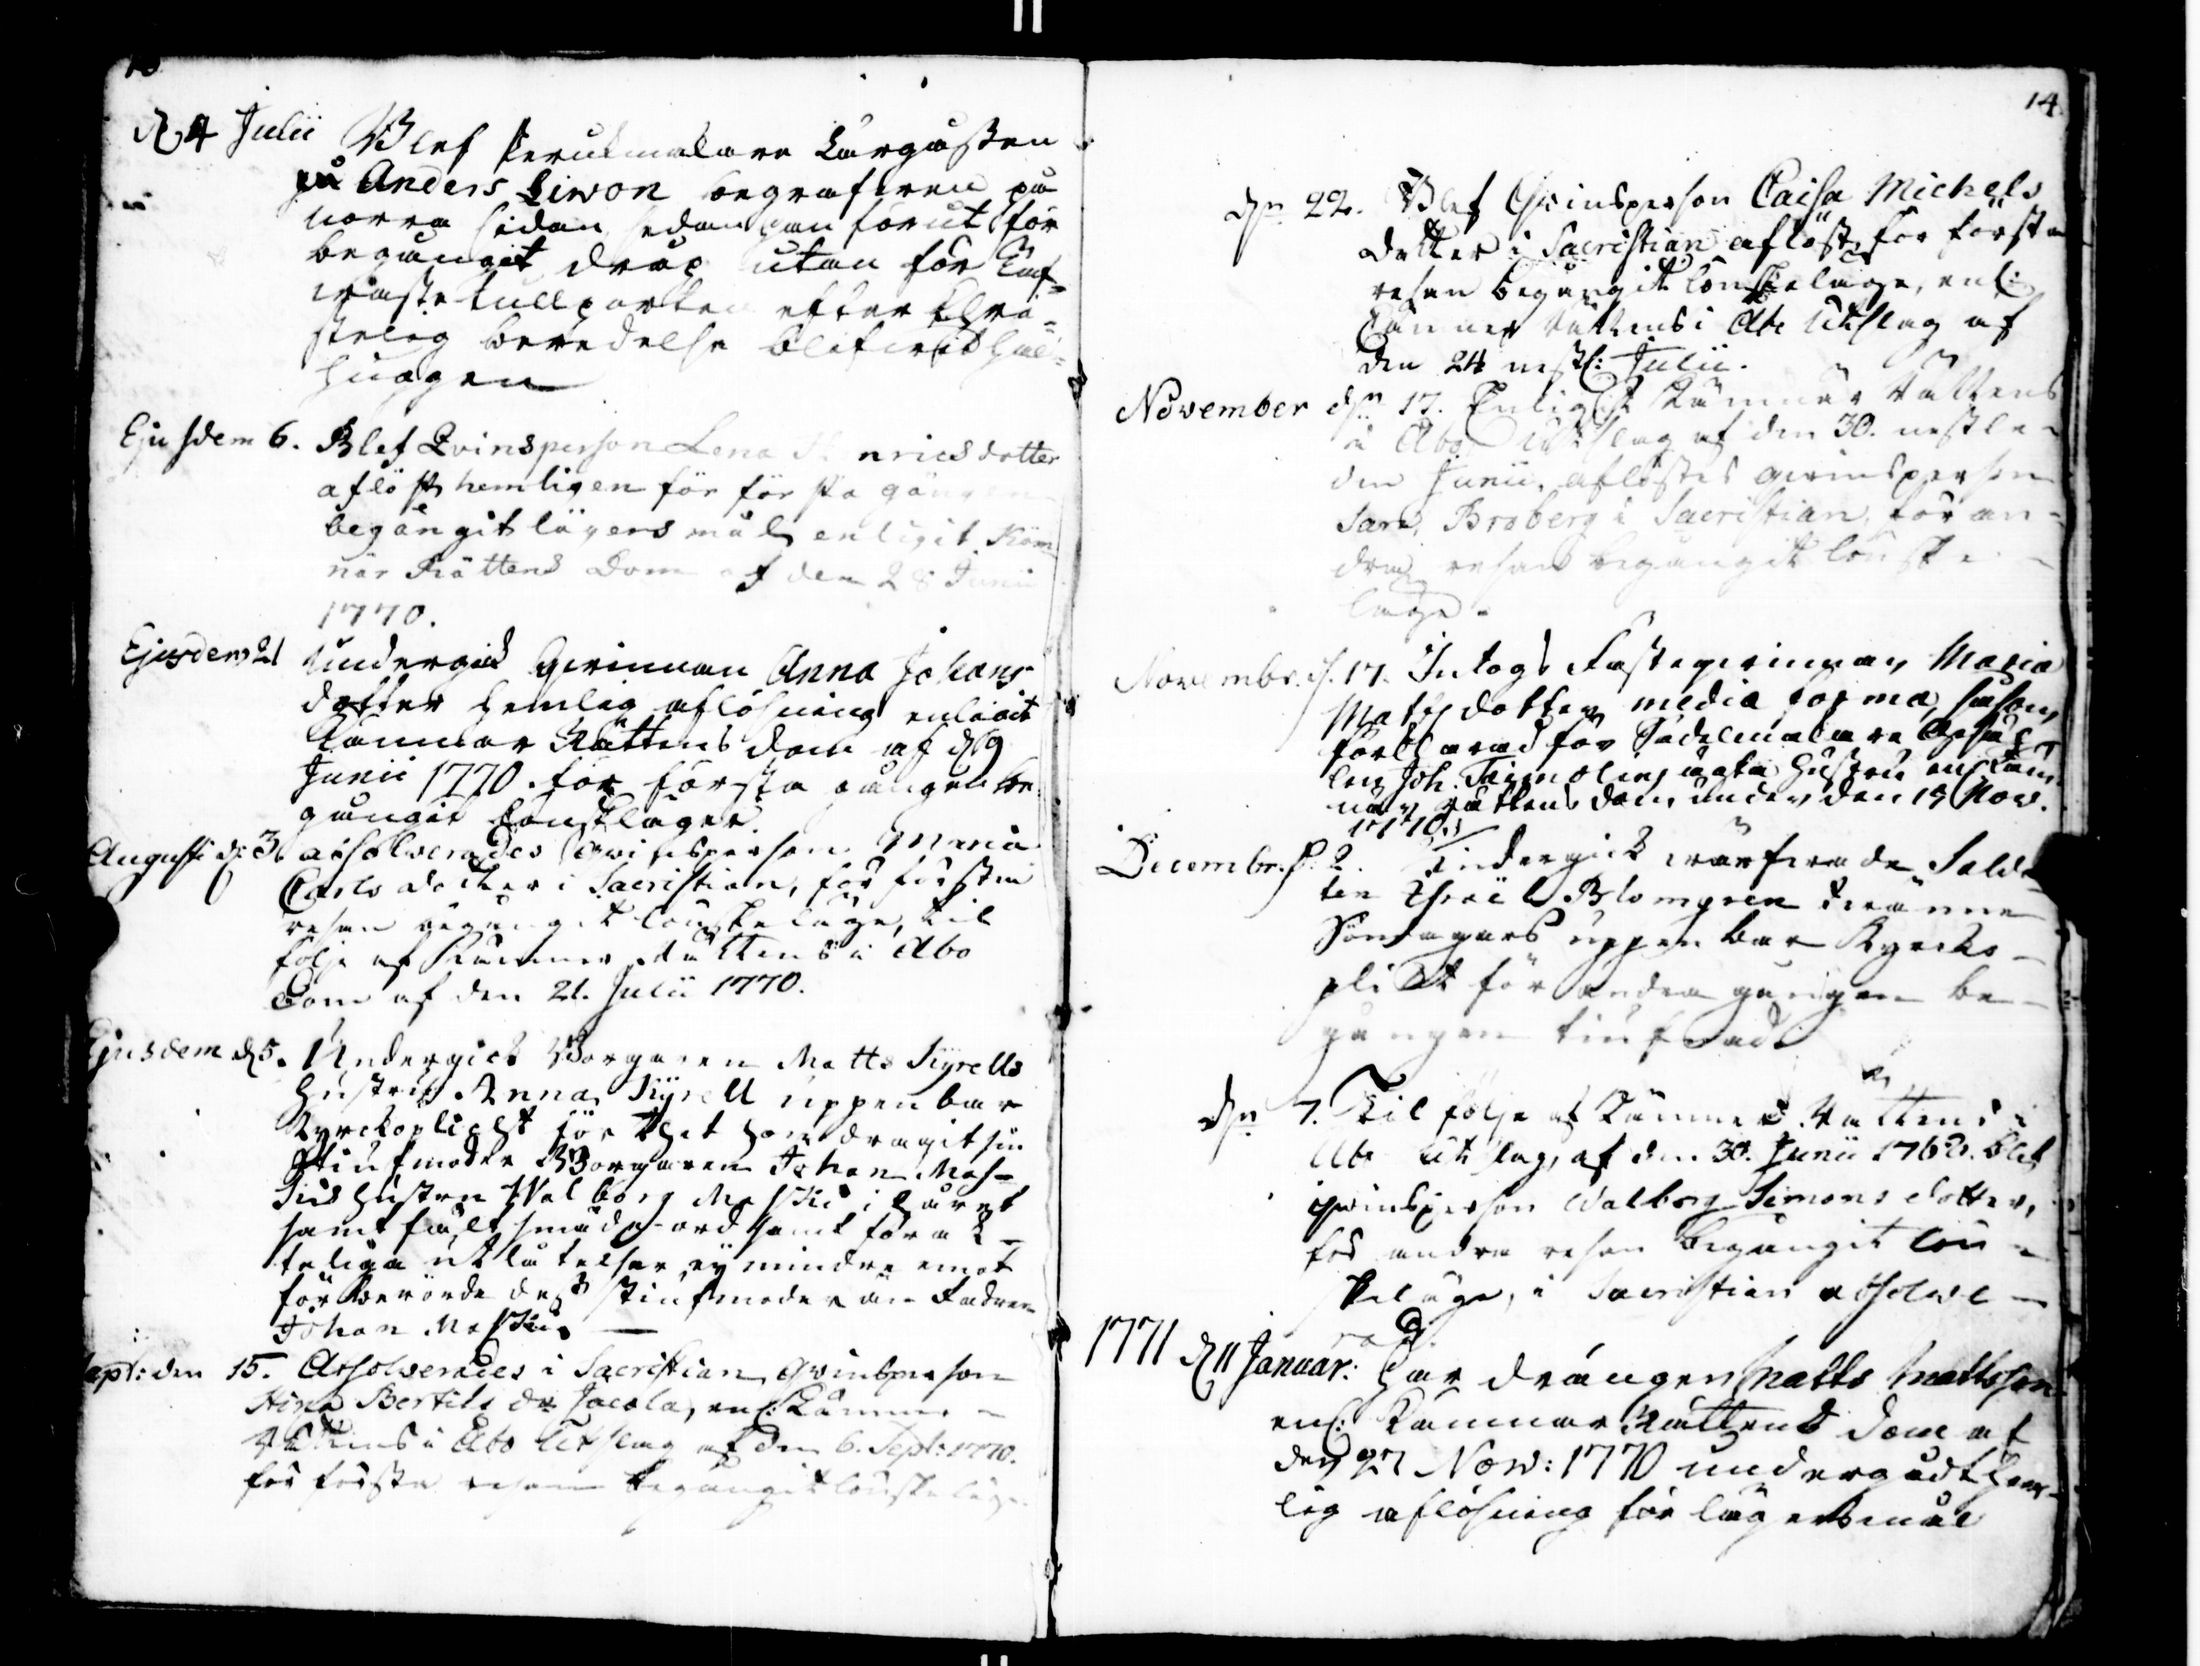 13
d. 4 Julii Blef Perukmakare Lärgossen
på Anders Liwon begrafwen på
norra sidan sedan han förut för
begångit dråp utan för
tullporten efter Chri=
stelig beredelse blifwit hals=
huggen
Ejusdem 6. Blef Qvinsperson Lena Henricsdotter
aflöst hemligen för första gången
begångit lägersmål enligit Käm
när Rättens Dom af den 28 Junii
1770.
Ejusdem 21 Undergick Qwinnan Anna Johans
dotter hemlig aflösning enligit
Kämnär Rättens dom af d. 9
Junii 1770. för första gången be
gångit Lönskläger.
Augusti d. 3. absolverades Qwinsperson Maria
Carls dotter i Sacristian, för första
resan begångit lönskeläge, til
följe af Kämner Rättens i Åbo
Dom af den 21. Julii 1770.
Ejusdem d. 5. Undergick Borgaren Matts Kyrells
Hustru Anna Kyrell uppenbar
Kyrckoplicht för thet hon dragit sin
Stiufmoder Borgaren Johan
Hustru Walborg i håret
samt fält smäde-ord samt förak-
teliga utlåtelser ej mindre emot
förberörde dess stiufmoder än Fadren
Johan
Sept: den 15. Absolverades i Sacristian qwinsperson
Stina Bertils dr Jacola, enl: Kämner-
Rättens i Åbo Utslag af den 6. Sept: 1770.
för första resan begångit lönskeläge
14.
dn 22. Blef Qwinsperson Caisa Michels
dotter i Sacristian aflöst, för första
resan begångit lönskeläge, enl:
Cämner Rättens i Åbo Utslag af
den 24 nestl: Julii.
November dn 17. Enligit Kämnär Rättens
i Åbo Utslag af den 30. nestle-
den Junii, aflöstes qwinsperson
Sara Broberg i Sacristian, för an-
dra resan begångit lönske
läge.
Novembr. d. 17. Intogs Fästeqwinnan Maria
Matts dotter media forma, såsom
förklarad för Sadelmakare
Joh. ägta Hustru enl. Käm
när Rättens dom under den 15 Nov.
1770.
Decembr. d. 2. Undergick wärfwade Solda
ten Blomgren trenne
Söndagars uppenbar Kyrcko-
plickt för andra gången be-
gången tiufnad
dn 7. Til följe af Kämner Rättens i
Åbo utslag, af den 30. Junii 1768. blef
qwinsperson Walborg Simons dotter,
för andra resan begångit lön-
skeläge, i Sacristian absolve-
rad.
1771 d. 11 Januar: har drängen Matts Mattsson
enl: Kämnär Rättens dom af
den 27 Nov: 1770 undergådt hem-
lig aflösning för lägersmål